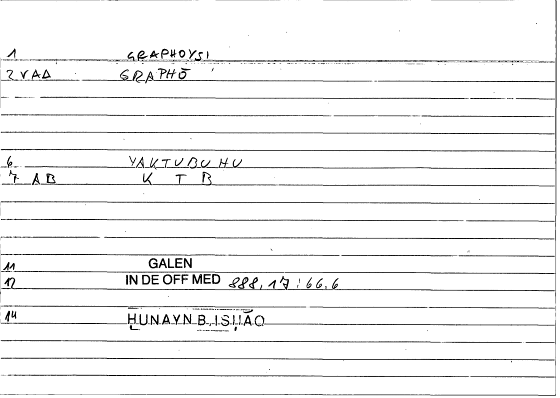 1 GRAPHOYSI
2 VAΔ GRAPHŌ
6 YAKTUBUHU
7 AB K T B
11 GALEN
12 IN DE OFF MED 888,17:66,6
14 ḤUNAYN B.ISḤĀQ